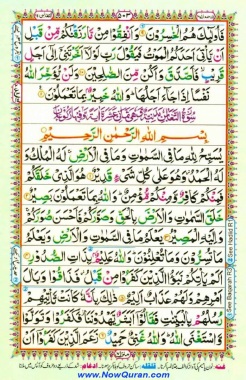 فَاُولٰٓئِكَ هُمُ الْخٰسِرُوْنَ وَاَنْفِقُوْا مِنْ مَّا رَزَقْنٰكُمْ مِّنْ قَبْلِ
اَنْ يَّاْتِيَ اَحَدَكُمُ الْمَوْتُ فَيَقُوْلَ رَبِّ لَوْلَآ اَخَّرْتَنِيْٓ اِلٰٓى اَجَلٍ
قَرِيْبٍ فَاَصَّدَّقَ وَاَكُنْ مِّنَ الصّٰلِحِيْنَ وَلَنْ يُّؤَخِّرَ اللّٰهُ
نَفْسًا اِذَا جَآءَ اَجَلُهَا وَاللّٰهُ خَبِيْرٌۢ بِمَا تَعْمَلُوْنَ
سُوْرَةُ التَّغَابُنِ
بِسْمِ اللّٰهِ الرَّحْمٰنِ الرَّحِيْمِ
يُسَبِّحُ لِلّٰهِ مَا فِي السَّمٰوٰتِ وَمَا فِي الْاَرْضِ لَهُ الْمُلْكُ
وَلَهُ الْحَمْدُ وَهُوَ عَلٰى كُلِّ شَيْءٍ قَدِيْرٌ هُوَ الَّذِيْ خَلَقَكُمْ
فَمِنْكُمْ كَافِرٌ وَّمِنْكُمْ مُّؤْمِنٌ وَاللّٰهُ بِمَا تَعْمَلُوْنَ بَصِيْرٌ
خَلَقَ السَّمٰوٰتِ وَالْاَرْضَ بِالْحَقِّ وَصَوَّرَكُمْ فَاَحْسَنَ صُوَرَكُمْ
وَاِلَيْهِ الْمَصِيْرُ يَعْلَمُ مَا فِي السَّمٰوٰتِ وَالْاَرْضِ وَيَعْلَمُ
مَا تُسِرُّوْنَ وَمَا تُعْلِنُوْنَ وَاللّٰهُ عَلِيْمٌۢ بِذَاتِ الصُّدُوْرِ
اَلَمْ يَاْتِكُمْ نَبَؤُا الَّذِيْنَ كَفَرُوْا مِنْ قَبْلُ فَذَاقُوْا وَبَالَ
اَمْرِهِمْ وَلَهُمْ عَذَابٌ اَلِيْمٌ ذٰلِكَ بِاَنَّهٗ كَانَتْ تَّاْتِيْهِمْ
رُسُلُهُمْ بِالْبَيِّنٰتِ فَقَالُوْٓا اَبَشَرٌ يَّهْدُوْنَنَا فَكَفَرُوْا وَتَوَلَّوْا
وَّاسْتَغْنَى اللّٰهُ وَاللّٰهُ غَنِيٌّ حَمِيْدٌ
www.NowQuran.com